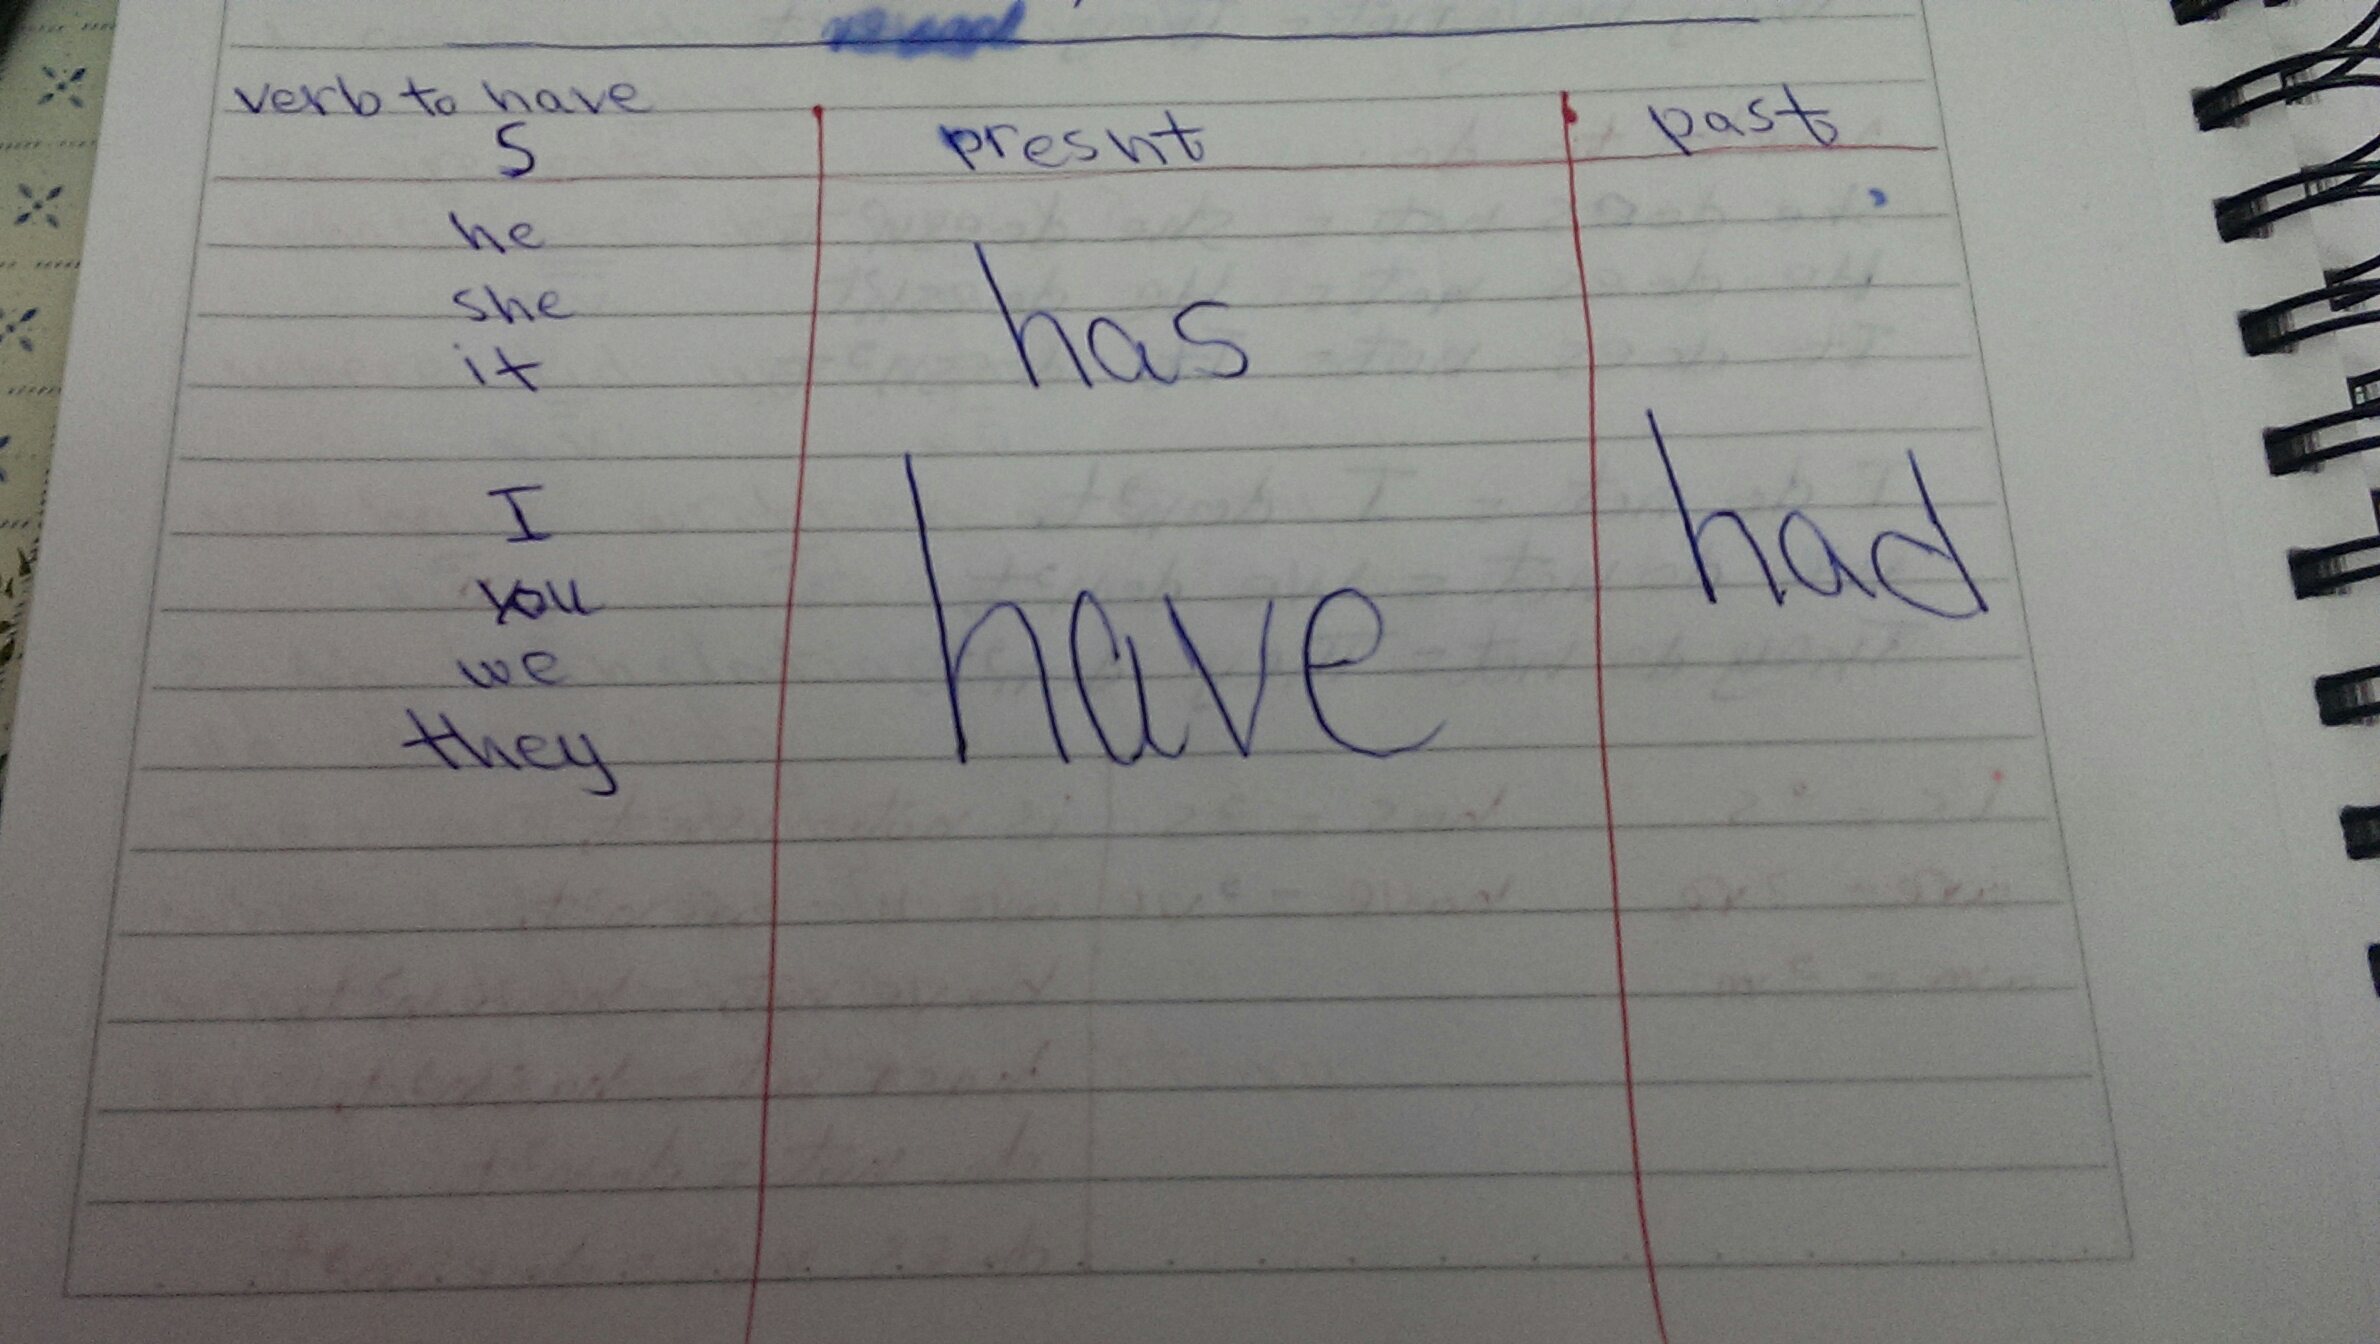 verb to have
S presnt past
he
she
it
has
I
you
we
they
have
had